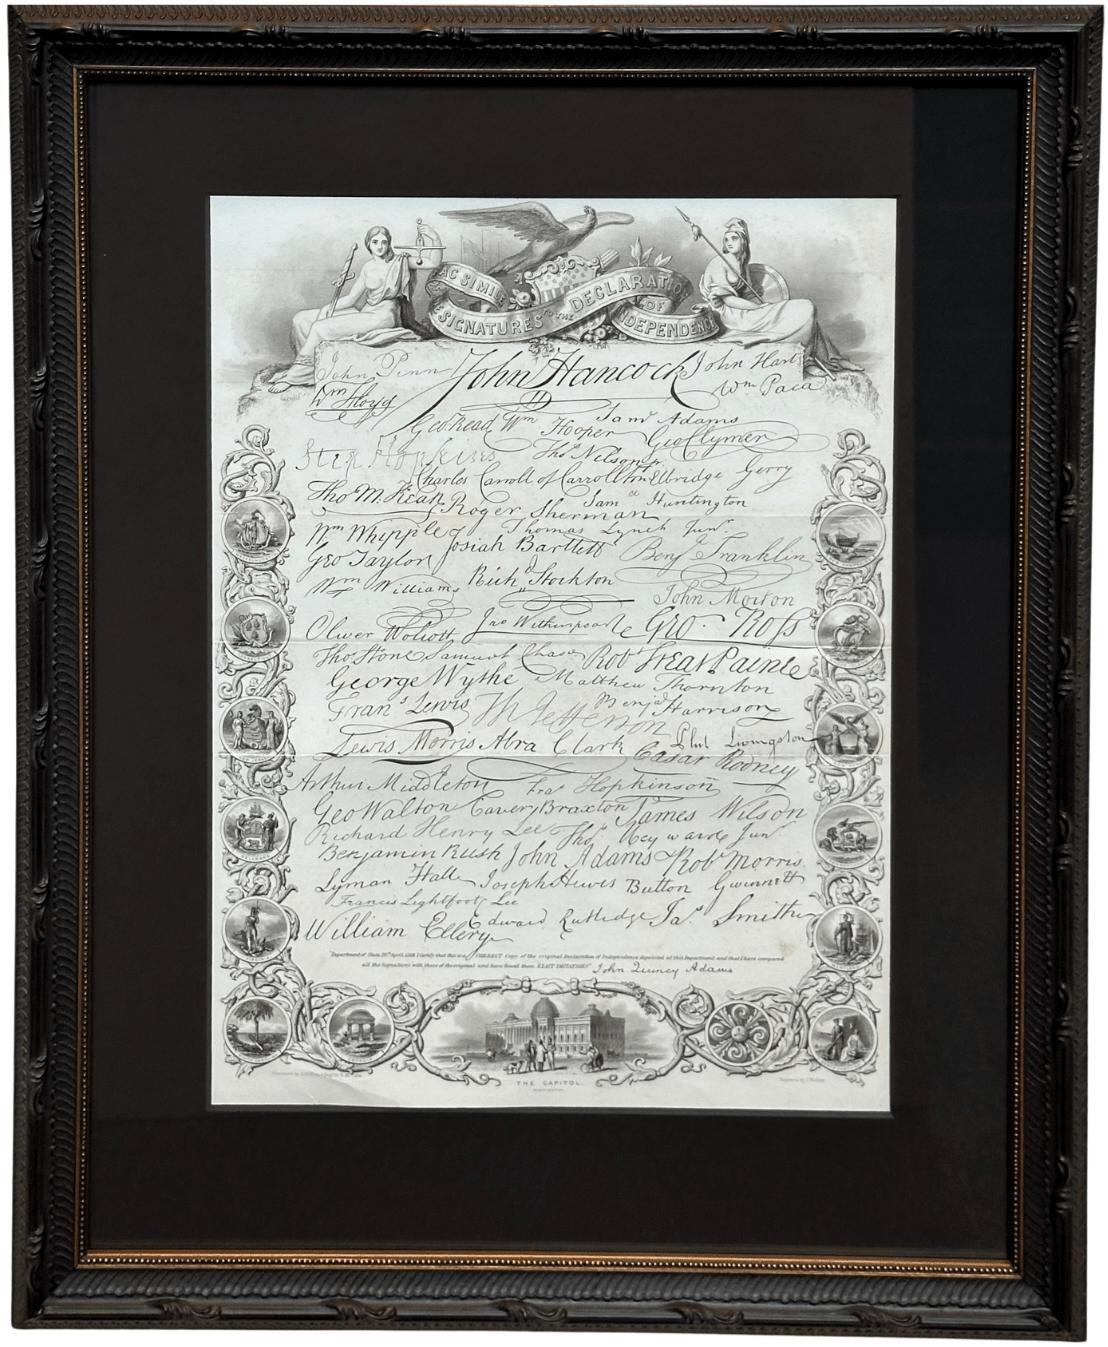 FAC SIMILE
OF THE SIGNATURES TO THE DECLARATION OF INDEPENDENCE
John Penn John Hancock John Hart
Wm Floyd Wm Paca
Geo Read Wm Hooper Saml Adams
Geo Clymer
Step Hopkins Thos Nelson jr
Charles Carroll of Carrollton Elbridge Gerry
Tho M:Kean Roger Sherman Saml Huntington
Wm Whipple Josiah Bartlett Thomas Lynch Junr
Geo Taylor Benj Franklin
Wm Williams Richd Stockton John Morton
Oliver Wolcott Jno Witherspoon Geo. Ross
Thos Stone Samuel Chase Robt Treat Paine
George Wythe Matthew Thornton
Frans Lewis Th Jefferson Benja Harrison
Lewis Morris Abra Clark Phil Livingston
Cæsar Rodney
Arthur Middleton Fras Hopkinson
Geo Walton Carter Braxton James Wilson
Richard Henry Lee Thos Heyward Junr
Benjamin Rush John Adams Robt Morris
Lyman Hall Joseph Hewes Button Gwinnett
Francis Lightfoot Lee
William Ellery Edward Rutledge Jas. Smith
Department of State, April, I Certify that this is a CORRECT Copy of the original Declaration of Independence deposited at this Department; and that I have compared
all the signatures with those of the original and have found them EXACT IMITATIONS." John Quincy Adams
THE CAPITOL